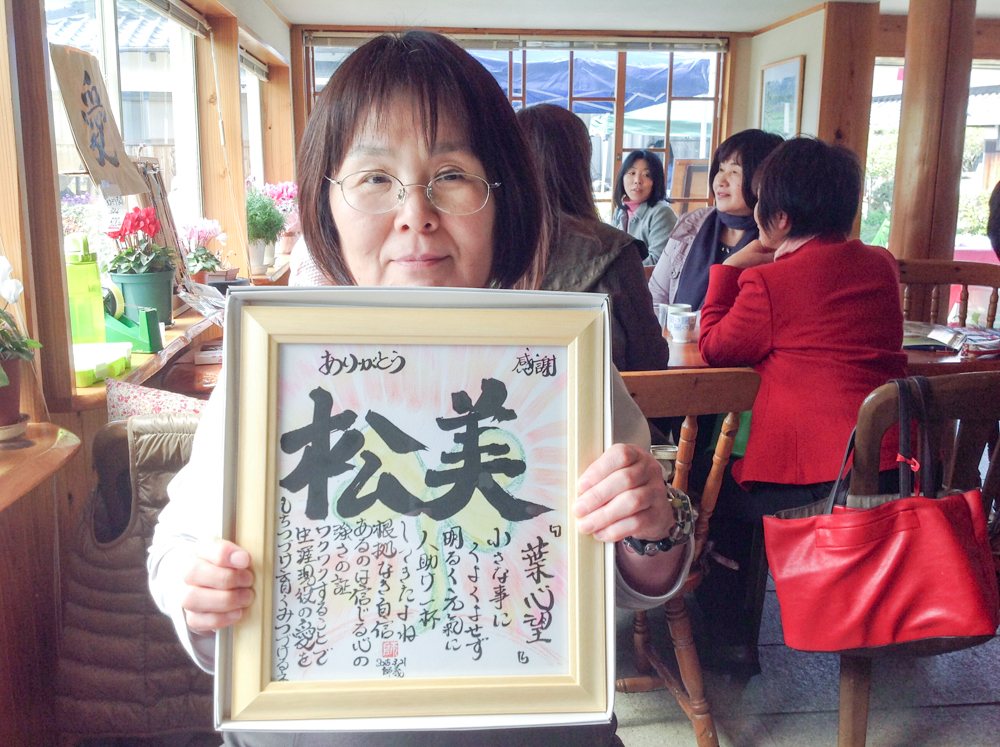 ありがとう
感謝
松美
『葉心望』
小さな事に
くよくよせず
明るく元氣に
人助け一杯
してきたよね
根拠なき自信
あるのは信じる心の
強さの証
ワクワクすることで
生涯現役の愛を
もちつづけ育くみつづけるよ